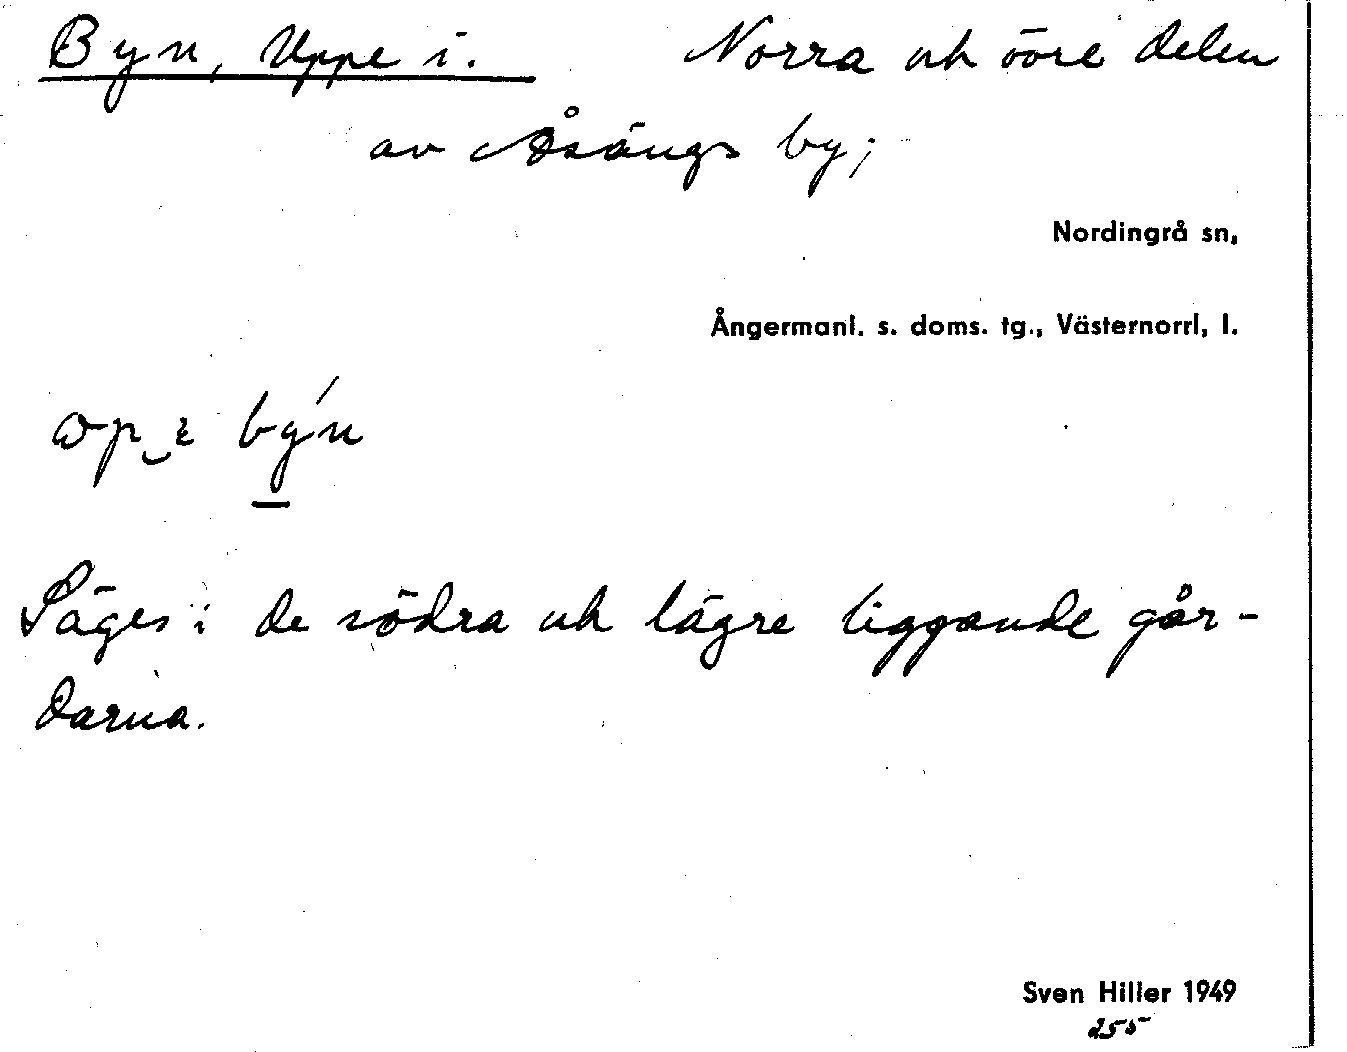 Byn, Uppe i. Norra och övre delen
av Åsängs by;
Nordingrå sn,
Ångermanl. s. doms. tg., Västernorrl, l.
býn
Säges i de södra och lägre liggande går-
darna.
Sven Hiller 1949
255